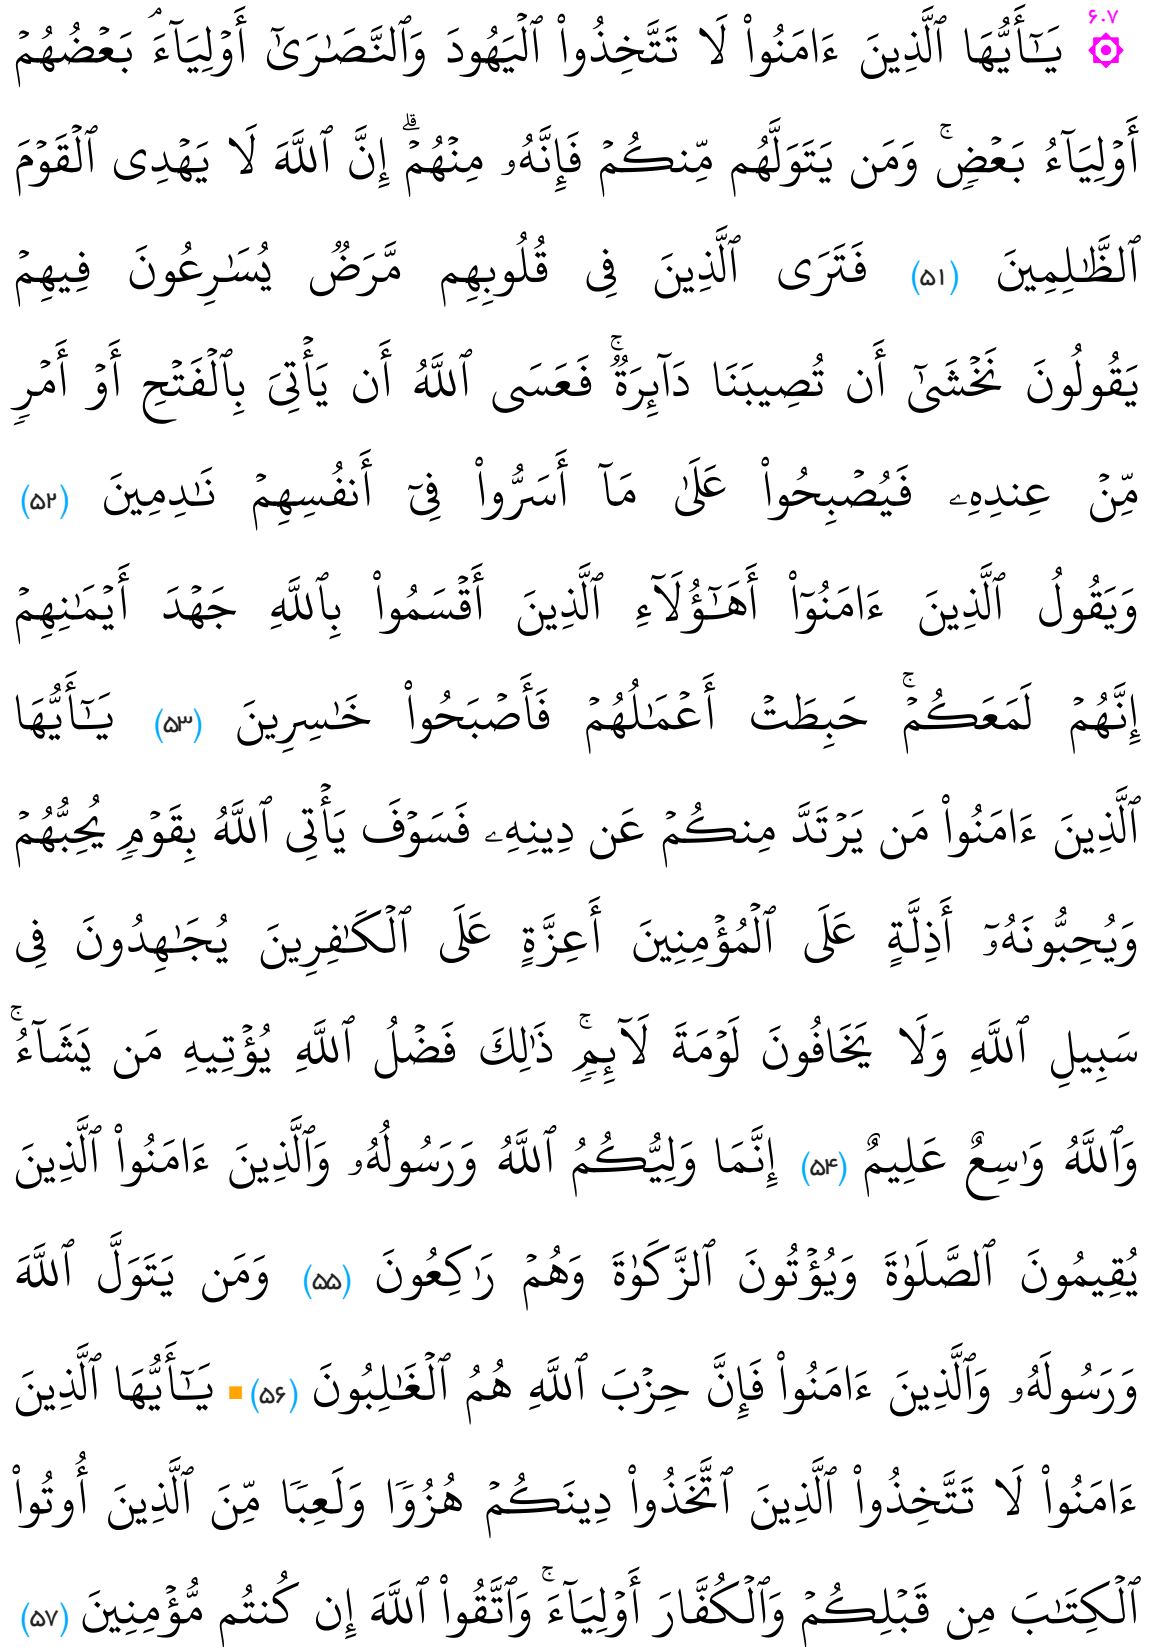 ۶.۷
۞ يَـٰٓأَيُّهَا ٱلَّذِينَ ءَامَنُوا۟ لَا تَتَّخِذُوا۟ ٱلْيَهُودَ وَٱلنَّصَـٰرَىٰٓ أَوْلِيَآءَ ۘ بَعْضُهُمْ
أَوْلِيَآءُ بَعْضٍ ۚ وَمَن يَتَوَلَّهُم مِّنكُمْ فَإِنَّهُۥ مِنْهُمْ ۗ إِنَّ ٱللَّهَ لَا يَهْدِى ٱلْقَوْمَ
ٱلظَّـٰلِمِينَ (۵۱) فَتَرَى ٱلَّذِينَ فِى قُلُوبِهِم مَّرَضٌ يُسَـٰرِعُونَ فِيهِمْ
يَقُولُونَ نَخْشَىٰٓ أَن تُصِيبَنَا دَآئِرَةٌ ۚ فَعَسَى ٱللَّهُ أَن يَأْتِىَ بِٱلْفَتْحِ أَوْ أَمْرٍ
مِّنْ عِندِهِۦ فَيُصْبِحُوا۟ عَلَىٰ مَآ أَسَرُّوا۟ فِىٓ أَنفُسِهِمْ نَـٰدِمِينَ (۵۲)
وَيَقُولُ ٱلَّذِينَ ءَامَنُوٓا۟ أَهَـٰٓؤُلَآءِ ٱلَّذِينَ أَقْسَمُوا۟ بِٱللَّهِ جَهْدَ أَيْمَـٰنِهِمْ
إِنَّهُمْ لَمَعَكُمْ ۚ حَبِطَتْ أَعْمَـٰلُهُمْ فَأَصْبَحُوا۟ خَـٰسِرِينَ (۵۳) يَـٰٓأَيُّهَا
ٱلَّذِينَ ءَامَنُوا۟ مَن يَرْتَدَّ مِنكُمْ عَن دِينِهِۦ فَسَوْفَ يَأْتِى ٱللَّهُ بِقَوْمٍ يُحِبُّهُمْ
وَيُحِبُّونَهُۥٓ أَذِلَّةٍ عَلَى ٱلْمُؤْمِنِينَ أَعِزَّةٍ عَلَى ٱلْكَـٰفِرِينَ يُجَـٰهِدُونَ فِى
سَبِيلِ ٱللَّهِ وَلَا يَخَافُونَ لَوْمَةَ لَآئِمٍ ۚ ذَٰلِكَ فَضْلُ ٱللَّهِ يُؤْتِيهِ مَن يَشَآءُ ۚ
وَٱللَّهُ وَٰسِعٌ عَلِيمٌ (۵۴) إِنَّمَا وَلِيُّكُمُ ٱللَّهُ وَرَسُولُهُۥ وَٱلَّذِينَ ءَامَنُوا۟ ٱلَّذِينَ
يُقِيمُونَ ٱلصَّلَوٰةَ وَيُؤْتُونَ ٱلزَّكَوٰةَ وَهُمْ رَٰكِعُونَ (۵۵) وَمَن يَتَوَلَّ ٱللَّهَ
وَرَسُولَهُۥ وَٱلَّذِينَ ءَامَنُوا۟ فَإِنَّ حِزْبَ ٱللَّهِ هُمُ ٱلْغَـٰلِبُونَ (۵۶) يَـٰٓأَيُّهَا ٱلَّذِينَ
ءَامَنُوا۟ لَا تَتَّخِذُوا۟ ٱلَّذِينَ ٱتَّخَذُوا۟ دِينَكُمْ هُزُوًا وَلَعِبًا مِّنَ ٱلَّذِينَ أُوتُوا۟
ٱلْكِتَـٰبَ مِن قَبْلِكُمْ وَٱلْكُفَّارَ أَوْلِيَآءَ ۚ وَٱتَّقُوا۟ ٱللَّهَ إِن كُنتُم مُّؤْمِنِينَ (۵۷)